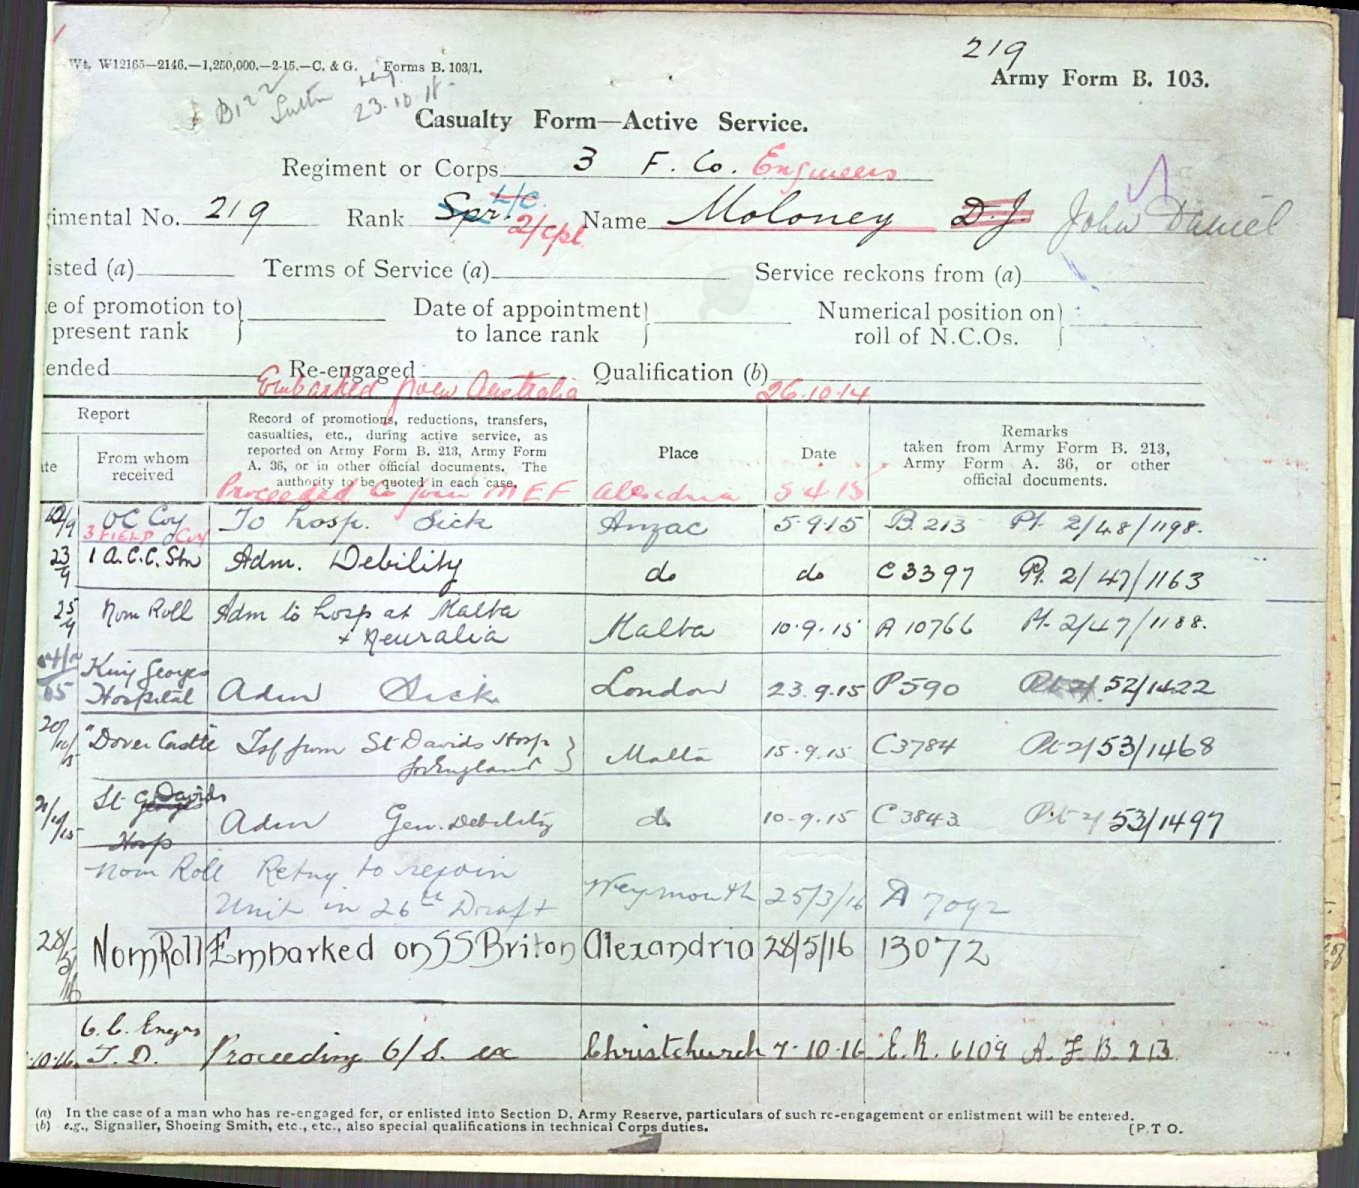 219
Wt. W12165—2146.—1,250,000.—2-15.—C. & G. Forms B. 103/1.
Army Form B. 103.
B122
23.10.15
Casualty Form—Active Service.
Regiment or Corps 3 F. Co. Engineers
imental No. 219 Rank Spr. L/C. 2/Cpl Name Moloney D.J. John Daniel
isted (a) Terms of Service (a) Service reckons from (a)
e of promotion to present rank } Date of appointment to lance rank } Numerical position on roll of N.C.Os. }
ended Re-engaged Qualification (b)
Embarked from Australia 26.10.14
Report
te
From whom received
Record of promotions, reductions, transfers, casualties, etc., during active service, as reported on Army Form B. 213, Army Form A. 36, or in other official documents. The authority to be quoted in each case.
Place
Date
Remarks
taken from Army Form B. 213, Army Form A. 36, or other official documents.
Proceeded to join MEF Alexandria 5 4 15
12/9 OC Coy 3 FIELD Coy To hosp. Sick Anzac 5.9.15 B.213 Pt. 2/48/1198.
23/9 1 A.C.C. Stn Adm. Debility do do C3397 Pt. 2/47/1163
25/9 Nom Roll Adm to hosp at Malta x Neuralia Malta 10.9.15 A 10766 Pt. 2/47/1188.
King Georges Hospital Adm Sick London 23.9.15 P590 52/1422
20/10/15 "Dover Castle" Tsf from St Davids Hosp for England } Malta 15.9.15 C3784 Pt 2/53/1468
21/10/15 St Davids Hosp Adm Gen. Debility do 10-9.15 C3843 Pt 2/53/1497
Nom Roll Retng to rejoin Unit in 26th Draft Weymouth 25/3/16 A 7092
28/5/16 Nom Roll Embarked on SS Briton Alexandria 28/5/16 13072
.10.16. O.C. Engrs T.D. Proceeding O/S. ex Christchurch 7.10.16 E.R. 6109 A.F.B. 213.
(a) In the case of a man who has re-engaged for, or enlisted into Section D, Army Reserve, particulars of such re-engagement or enlistment will be entered.
(b) e.g., Signaller, Shoeing Smith, etc., etc., also special qualifications in technical Corps duties. [P.T O.